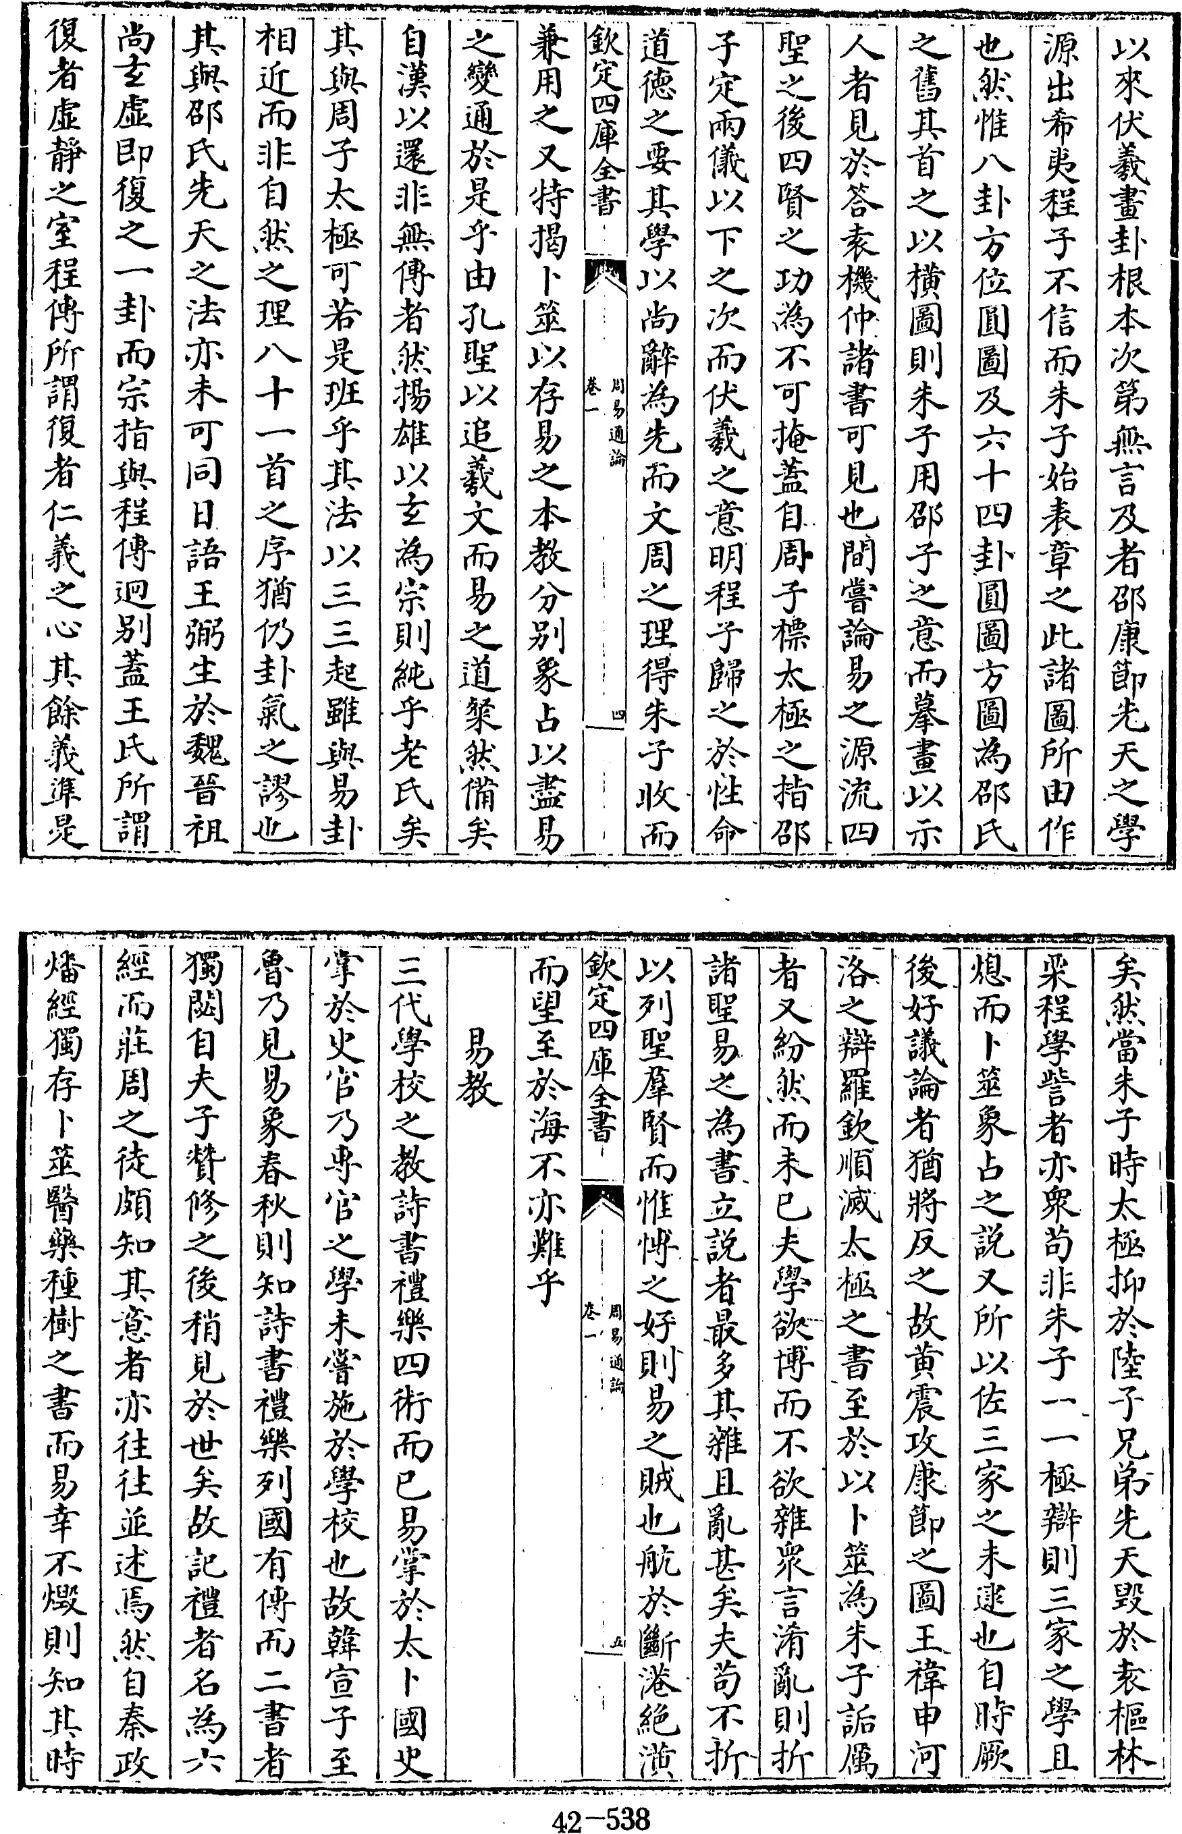 以來伏羲畫卦根本次第無言及者邵康節先天之學
源出希夷程子不信而朱子始表章之此諸圖所由作
也然惟八卦方位圓圖及六十四卦圓圖方圖為邵氏
之舊其首之以橫圖則朱子用邵子之意而摹畫以示
人者見於答袁機仲諸書可見也間嘗論易之源流四
聖之後四賢之功為不可掩蓋自周子標太極之指邵
子定兩儀以下之次而伏羲之意明程子歸之於性命
道德之要其學以尚辭為先而文周之理得朱子收而
欽定四庫全書
周易通論
卷一
四
兼用之又特揭卜筮以存易之本教分别象占以盡易
之變通於是乎由孔聖以追羲文而易之道粲然備矣
自漢以還非無傳者然揚雄以玄為宗則純乎老氏矣
其與周子太極可若是班乎其法以三三起雖與易卦
相近而非自然之理八十一首之序猶仍卦氣之謬也
其與邵氏先天之法亦未可同日語王弼生於魏晉祖
尚玄虛即復之一卦而宗指與程傳迥别蓋王氏所謂
復者虛靜之室程傳所謂復者仁義之心其餘義準是
矣然當朱子時太極抑於陸子兄弟先天毀於袁樞林
栗程學訾者亦衆茍非朱子一一極辯則三家之學且
熄而卜筮象占之説又所以佐三家之未逮也自時厥
後好議論者猶將反之故黄震攻康節之圖王褘申河
洛之辯羅欽順滅太極之書至於以卜筮為朱子詬厲
者又紛然而未已夫學欲博而不欲雜衆言淆亂則折
諸聖易之為書立説者最多其雜且亂甚矣夫茍不折
以列聖羣賢而惟博之好則易之賊也航於斷港絶潢
欽定四庫全書
周易通論
卷一
五
而望至於海不亦難乎
易教
三代學校之教詩書禮樂四術而已易掌於太卜國史
掌於史官乃專官之學未嘗施於學校也故韓宣子至
魯乃見易象春秋則知詩書禮樂列國有傳而二書者
獨闕自夫子贊修之後稍見於世矣故記禮者名為六
經而莊周之徒頗知其意者亦往往並述焉然自秦政
燔經獨存卜筮醫藥種樹之書而易幸不燬則知其時
42-538